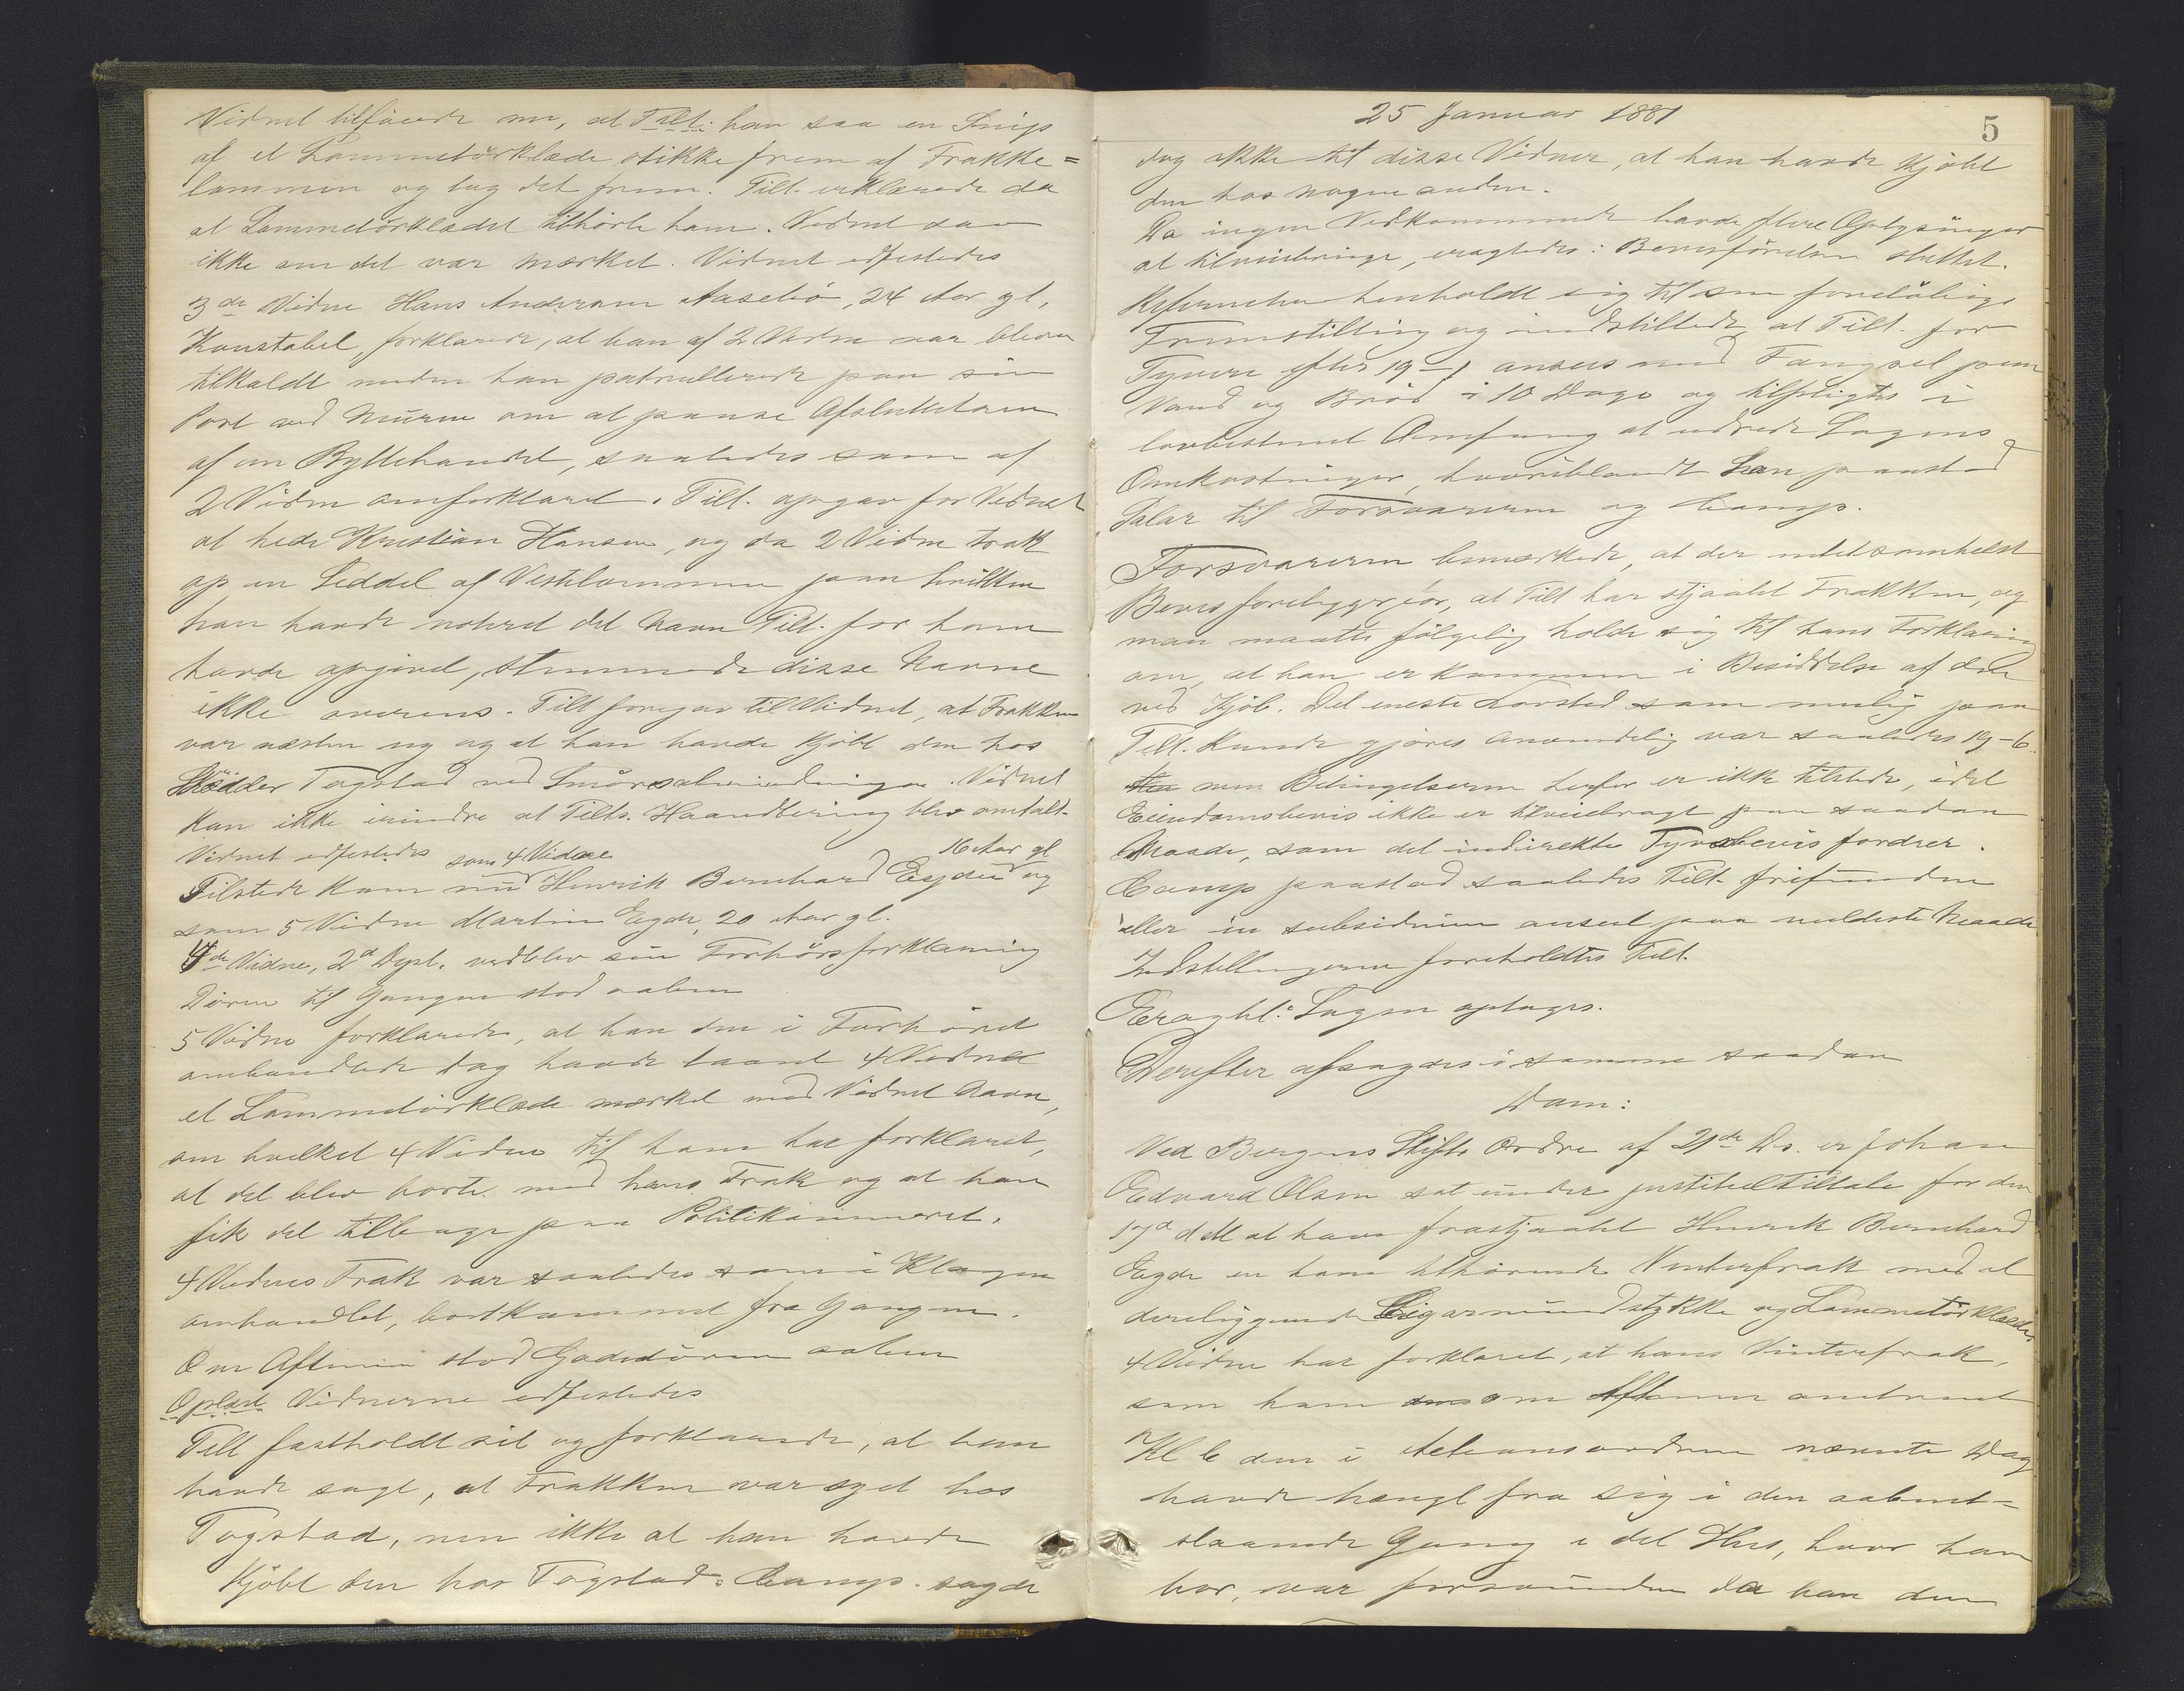 Vidnet tilføiede nu, at Tilt. han saa en Snip
af et Lommetørklæde stikke frem af Frakke=
lommen og tog det frem. Tilt. erklærede da
at Lommetørklædet tilhørte ham. Vidnet saa
ikke om det var mærket. Vidnet edfæstedes
3die Vidne Hans Andersen Aasebø, 24 Aar gl,
Konstabel, forklarede, at han af 2 Vidne var bleven
tilkaldt medens han patrullerede paa sin
Post ved Muren om at paase Afslutteten
af en Byttehandel, saaledes som af
2 Vidne omforklaret. Tilt. opgav for Vidnet
at hede Kristian Hansen, og da 2 Vidne trak
op en Seddel af Vestelommen paa hvilken
han havde noteret det Navn Tilt. for ham
havde opgivet, stemmede disse Navne
ikke overens. Tilt foregav til Vidnet, at Frakken
var næsten ny og at han havde kjøbt den hos
Skrædder Togstad ved Smørsalmindingen. Vidnet
kan ikke erindre at Tilts. Haandtering blev omtalt.
Vidnet edfæstedes
Tilstede kom nu som 4 Vidne Henrik Bernhard Eegde 16 Aar gl og
som 5 Vidne Martin Eegde, 20 Aar gl.
4de Vidne, 2d Dept. vedblev sin Forhørsforklaring
Døren til Gangen stod aaben
5 Vidne forklarede, at han den i Forhøret
ombandlede Dag havde laant 4 Vidnet
et Lommetørklæde mærket med Vidnet Navn,
om hvilket 4 Vidne til ham har forklaret,
at det blev borte med hans Frak og at han
fik det tilbage paa Politikammeret.
4 Vidnes Frak var saaledes som i Klagen
omhandlet, bortkommet fra Gangen.
Om Aftenen stod Gadedøren aaben
Oplæst. Vidnerne edfæstedes
Tilt fastholdt sit og forklarede, at han
havde sagt, at Frakken var syet hos
Togstad, men ikke at han havde
kjøbt den hos Togstad. Comp. sagde
25 Januar 1881
5
dog ikke til disse Vidner, at han havde kjøbt
den hos nogen anden.
Da ingen Vedkommende havde flere Oplysninger
at tilveiebringe, eragtedes: Bevisførelsen sluttet.
Referenten henholdt sig til sin foreløbige
Fremstilling og indstillede, at Tilt. for
Tyveri efter 19–1 ansees med Fængsel paa
Vand og Brød i 10 Dage og tilpligtes i
lovbestemt Omfang at udrede Sagens
Omkostninger, hvoriblandt han paastod
Salær til Forsvareren og Comp.
Forsvareren bemærkede, at der intetsomhelst
Bevis foreligger for, at Tilt har stjaalet Frakken, og
man maatte følgelig holde sig til hans Forklaring
om, at han er kommen i Besiddelse af den
ved Kjøb. Det eneste Lovsted som mulig paa
Tilt. kunde gjøres anvendelig var saaledes 19–6.
men Betingelserne herfor er ikke tilstede, idet
Eiendomsbevis ikke er tilveiebragt paa saadan
Maade, som det indirekte Tyvsbevis fordrer.
Comp paastod saaledes Tilt. frifunden
eller in subsidium anseet paa mildeste Maade
Indstillingerne foreholdtes Tilt.
Eragtet: Sagen optages.
Derefter afsagdes i samme saadan
Dom:
Ved Bergens Stifts Ordre af 21de Ds. er Johan
Edvard Olsen sat under justitiel Tiltale for den
17d dM at have frastjaalet Henrik Bernhard
Eegde en ham tilhørende Vinterfrak med et
deriliggende Cigarmundstykke og Lommetørklæde.
4 Vidne har forklaret, at hans Vinterfrak,
som han om Aftenen omtrent
Kl 6 den i Actionsordren nævnte Dag
havde hængt fra sig i den aabent=
staaende Gang i det Hus, hvor han
bor, var forsvunden da han den